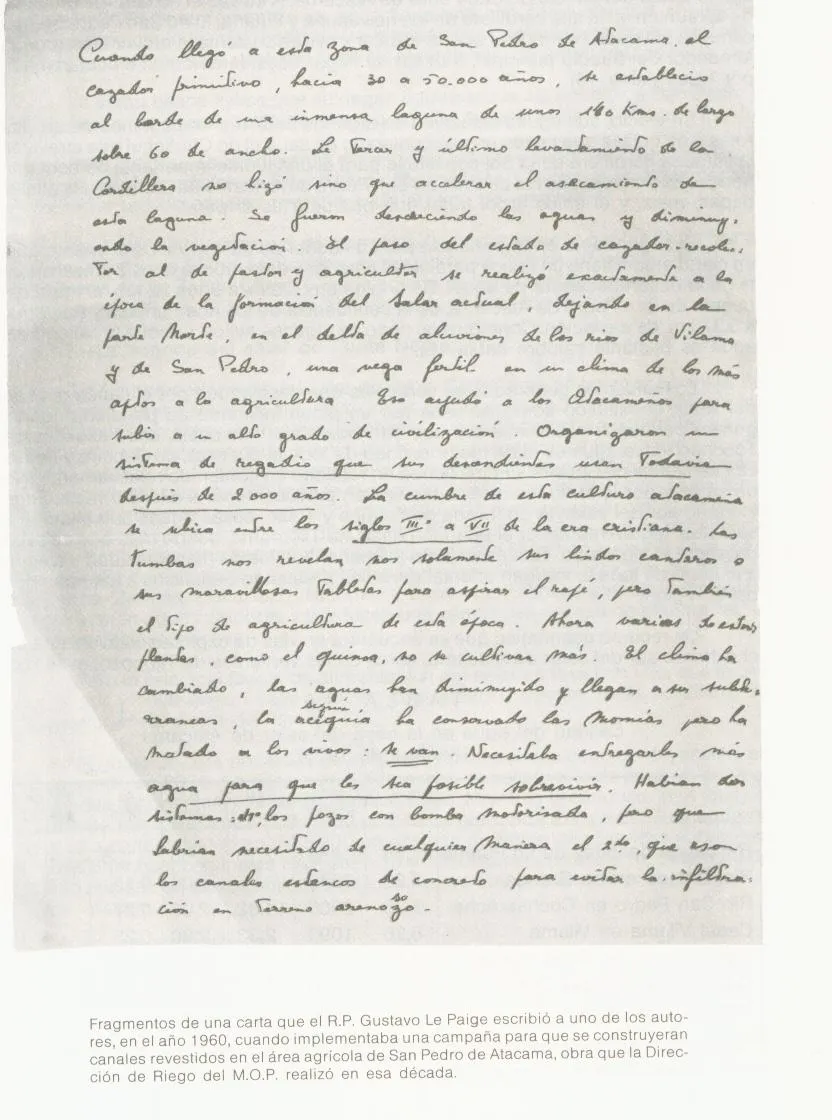 Cuando llegó a esta zona de San Pedro de Atacama, el
cazador primitivo, hacia 30 a 50.000 años, se establecio
al borde de una inmensa laguna de unos 180 Kms. de largo
sobre 60 de ancho. Le Tercer y último levantamiento de la
Cordillera no hizó sino que accelerar el asecamiento de
esta laguna. Se fueron desdeciendo las aguas y diminuy-
endo la vegetación. El paso del estado de cazador-recolec-
tor al de pastor y agricultor se realizó exactamente a la
época de la formación del Salar actual, dejando en la
parte Norte, en el delta de aluviones de los rios de Vilama
y de San Pedro, una vega fertil en un clima de los más
aptos a la agricultura Eso ayudó a los Atacameños para
subir a un alto grado de civilización. Organizaron un
sistema de regadio que sus descendientes usan Todavia
después de 2000 años. La cumbre de esta cultura atacameña
se ubica entre los siglos III° a VII de la era cristiana. Las
tumbas nos revelan nos solamente sus lindos cantaros o
sus maravillosas Tabletas para aspirar el rapé, pero También
el Tipo de agricultura de esta época. Ahora varias de estas
plantas, como el quinoa, no se cultivan más. El clima ha
cambiado, las aguas han diminuyido y llegan a ser subte-
rraneas, la acequia ha conservado las Momias pero ha
sequia
matado a los vivos: se van. Necesitaba entregarles más
agua para que les sea posible sobrevivir. Habian dos
sistemas: los pozos con bomba motorisada, pero que
habrian necesitado de cualquier manera el 2do, que eran
los canales estancos de concreto para evitar la infiltra-
ción en Terreno arenozo.
so
Fragmentos de una carta que el R.P. Gustavo Le Paige escribió a uno de los auto-
res, en el año 1960, cuando implementaba una campaña para que se construyeran
canales revestidos en el área agrícola de San Pedro de Atacama, obra que la Direc-
ción de Riego del M.O.P. realizó en esa década.